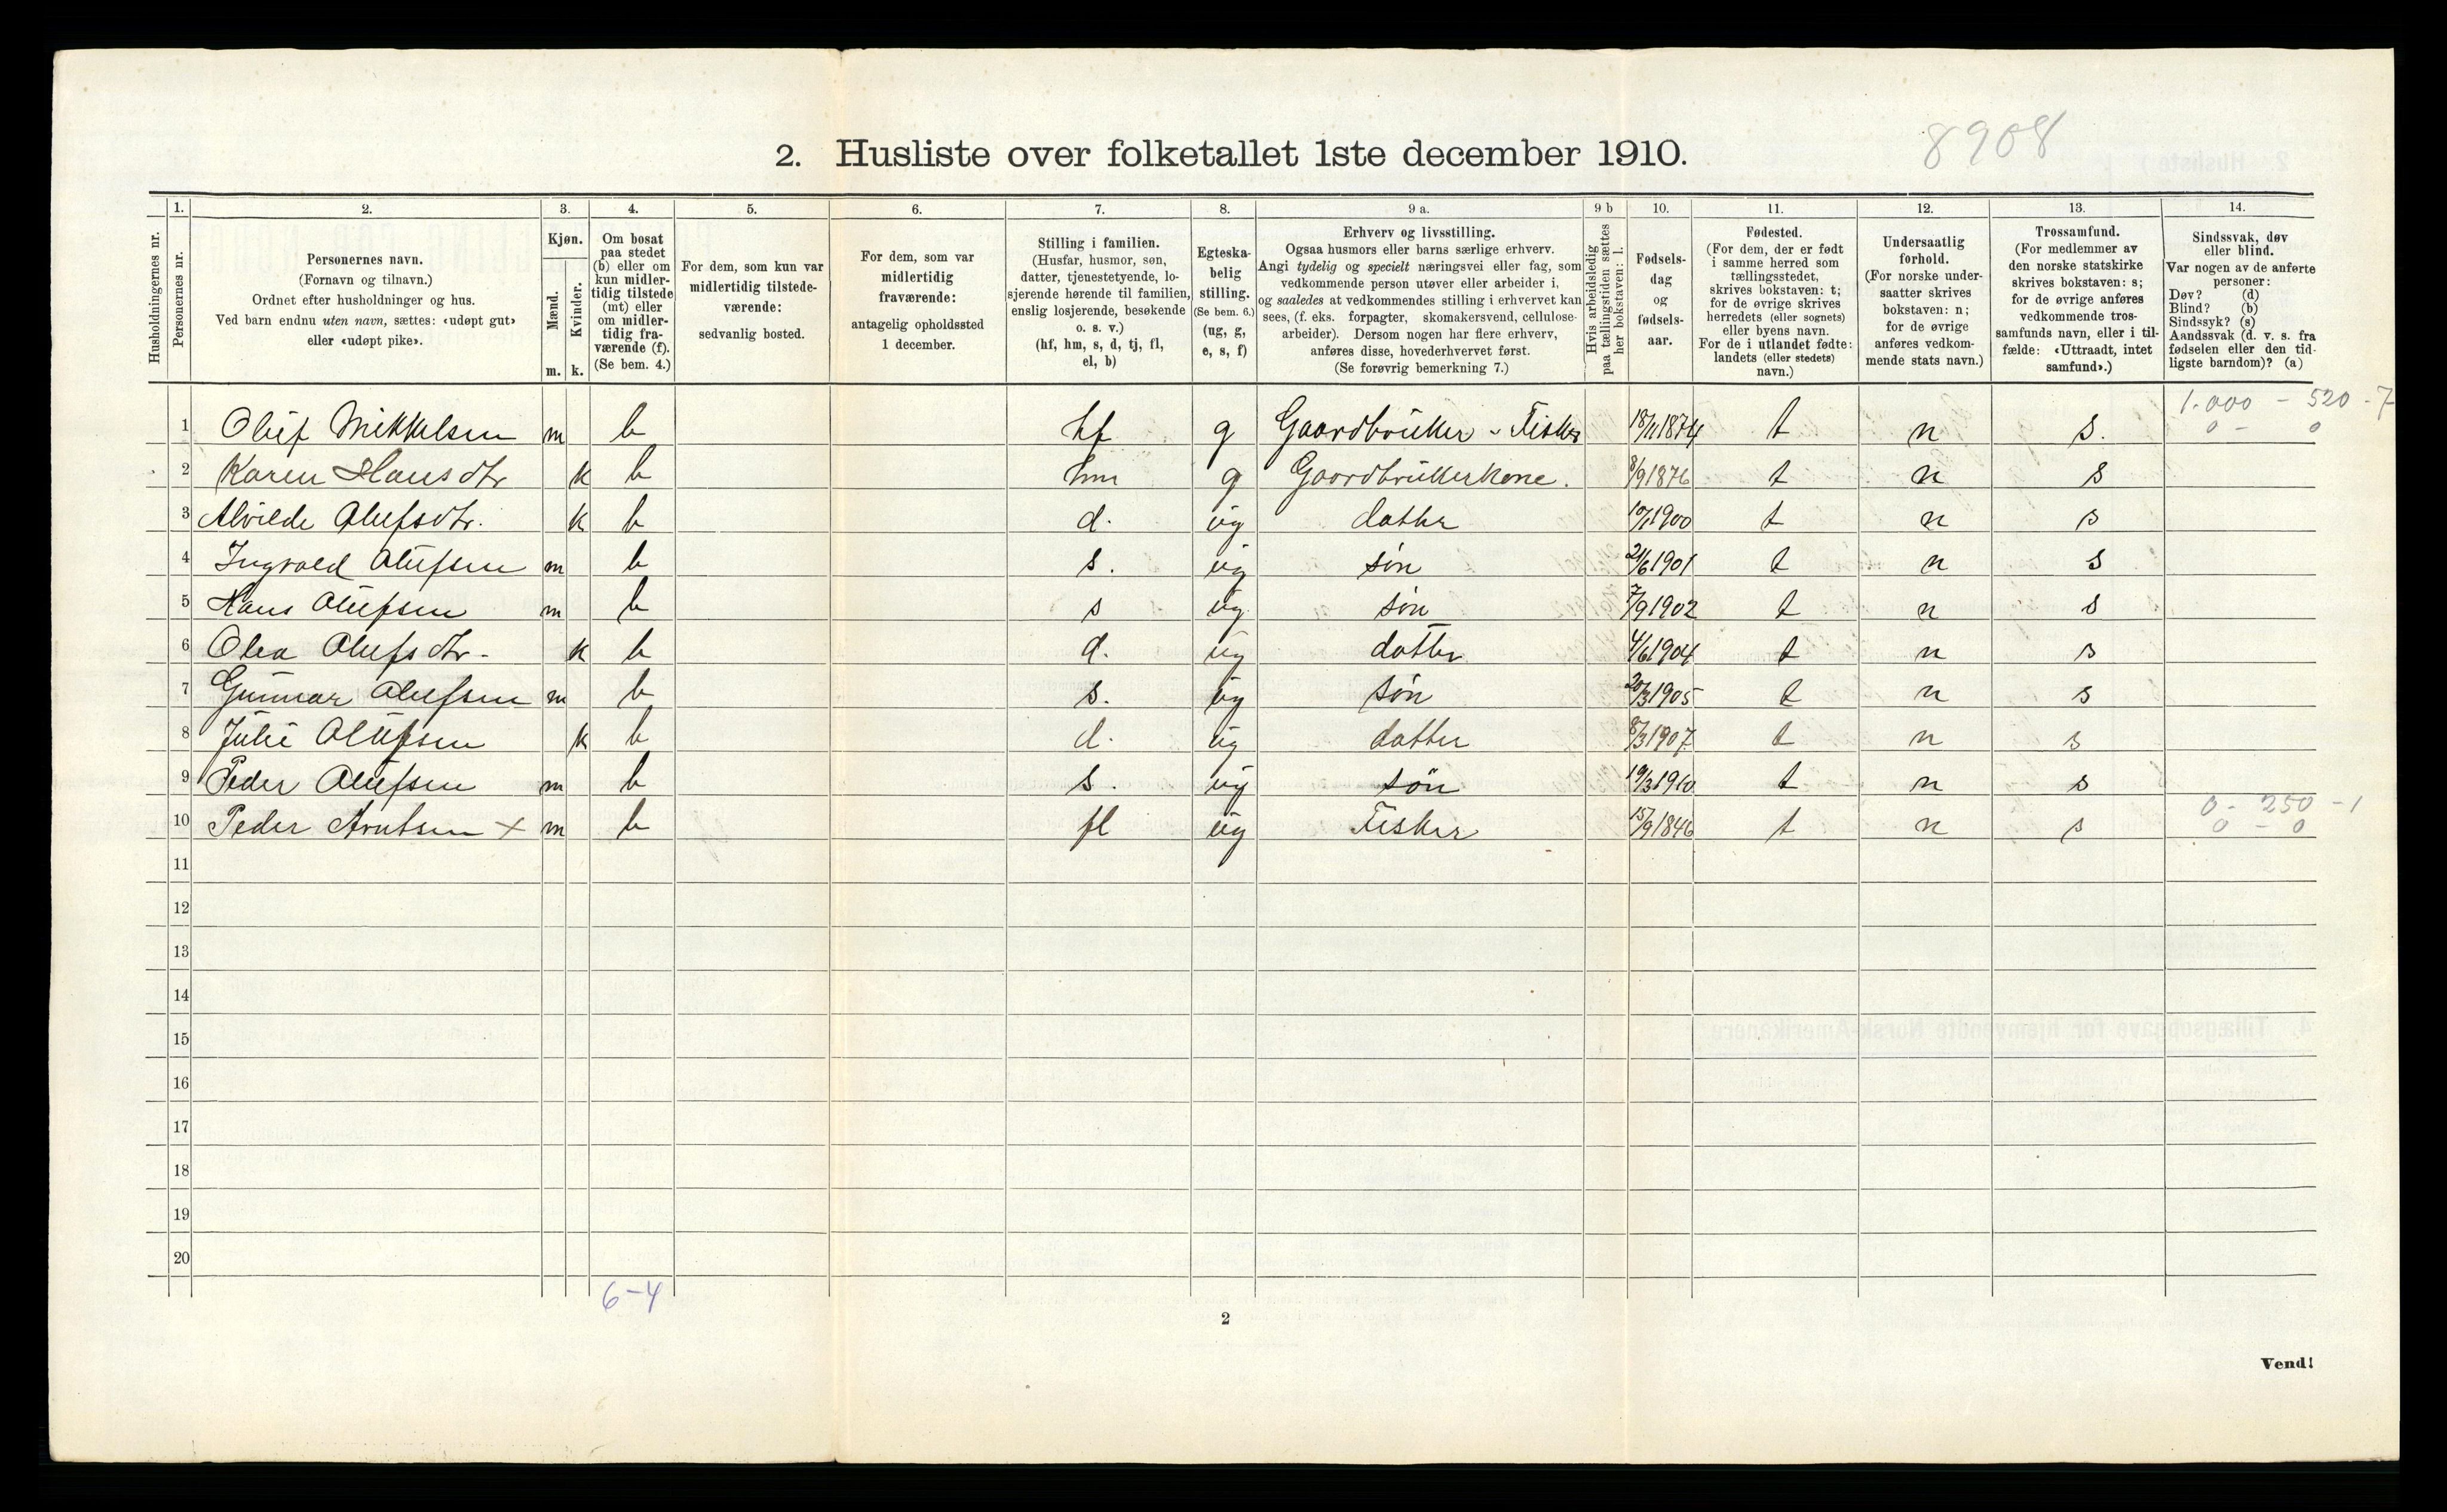 8908
2. Husliste over folketallet 1ste december 1910.
Husholdningernes nr.
1.
Personernes nr.
2.
Personernes navn.
(Fornavn og tilnavn.)
Ordnet efter husholdninger og hus.
Ved barn endnu uten navn, sættes: «udøpt gut»
eller «udøpt pike».
3.
Kjøn.
Mænd.
Kvinder.
m. k.
4.
Om bosat
paa stedet
(b) eller om
kun midler-
tidig tilstede
(mt) eller
om midler-
tidig fra-
værende (f).
(Se bem. 4.)
5.
For dem, som kun var
midlertidig tilstede-
værende:
sedvanlig bosted.
6.
For dem, som var
midlertidig
fraværende:
antagelig opholdssted
1 december.
7.
Stilling i familien.
(Husfar, husmor, søn,
datter, tjenestetyende, lo-
sjerende hørende til familien,
enslig losjerende, besøkende
o. s. v.)
(hf, hm, s, d, tj, fl,
el, b)
8.
Egteska-
belig
stilling.
(Se bem. 6.)
(ug, g,
e, s, f)
9 a.
Erhverv og livsstilling.
Ogsaa husmors eller barns særlige erhverv.
Angi tydelig og specielt næringsvei eller fag, som
vedkommende person utøver eller arbeider i,
og saaledes at vedkommendes stilling i erhvervet kan
sees, (f. eks. forpagter, skomakersvend, cellulose-
arbeider). Dersom nogen har flere erhverv,
anføres disse, hovederhvervet først.
(Se forøvrig bemerkning 7.)
9 b
Hvis arbeidsledig
paa tællingstiden sættes
her bokstaven: l.
10.
Fødsels-
dag
og
fødsels-
aar.
11.
Fødested.
(For dem, der er født
i samme herred som
tællingsstedet,
skrives bokstaven: t;
for de øvrige skrives
herredets (eller sognets)
eller byens navn.
For de i utlandet fødte:
landets (eller stedets)
navn.)
12.
Undersaatlig
forhold.
(For norske under-
saatter skrives
bokstaven: n;
for de øvrige
anføres vedkom-
mende stats navn.)
13.
Trossamfund.
(For medlemmer av
den norske statskirke
skrives bokstaven: s;
for de øvrige anføres
vedkommende tros-
samfunds navn, eller i til-
fælde: «Uttraadt, intet
samfund».)
14.
Sindssvak, døv
eller blind.
Var nogen av de anførte
personer:
Døv? (d)
Blind? (b)
Sindssyk? (s)
Aandssvak (d. v. s. fra
fødselen eller den tid-
ligste barndom)? (a)
1.000 - 520 - 7
1 Oluf Mikkelsen m b hf g Gaardbruker - Fisker 18/11 1874 t n s. 0 - 0
2 Karen Hansdtr k b hm g Gaardbrukerkone. 8/9 1876 t n s
3 Alvilde Olufsdtr. k b d. ug datter 10/1 1900 t n s
4 Ingvald Olufsen m b s. ug søn 21/6 1901 t n s
5 Hans Olufsen m b s ug søn 7/9 1902 t n s
6 Olea Olufsdtr. k b d. ug datter 4/6 1904 t n s
7 Gunnar Olufsen m b s. ug søn 20/3 1905 t n s
8 Julie Olufsen k b d. ug datter 8/3 1907 t n s
9 Peder Olufsen m b s. ug søn 19/3 1910 t n s
0 - 250 - 1
10 Peder Arntsen x m b fl ug Fisker 15/9 1846 t n s 0 - 0
11
12
13
14
15
16
17
18
19
20
6-4
2
Vend!